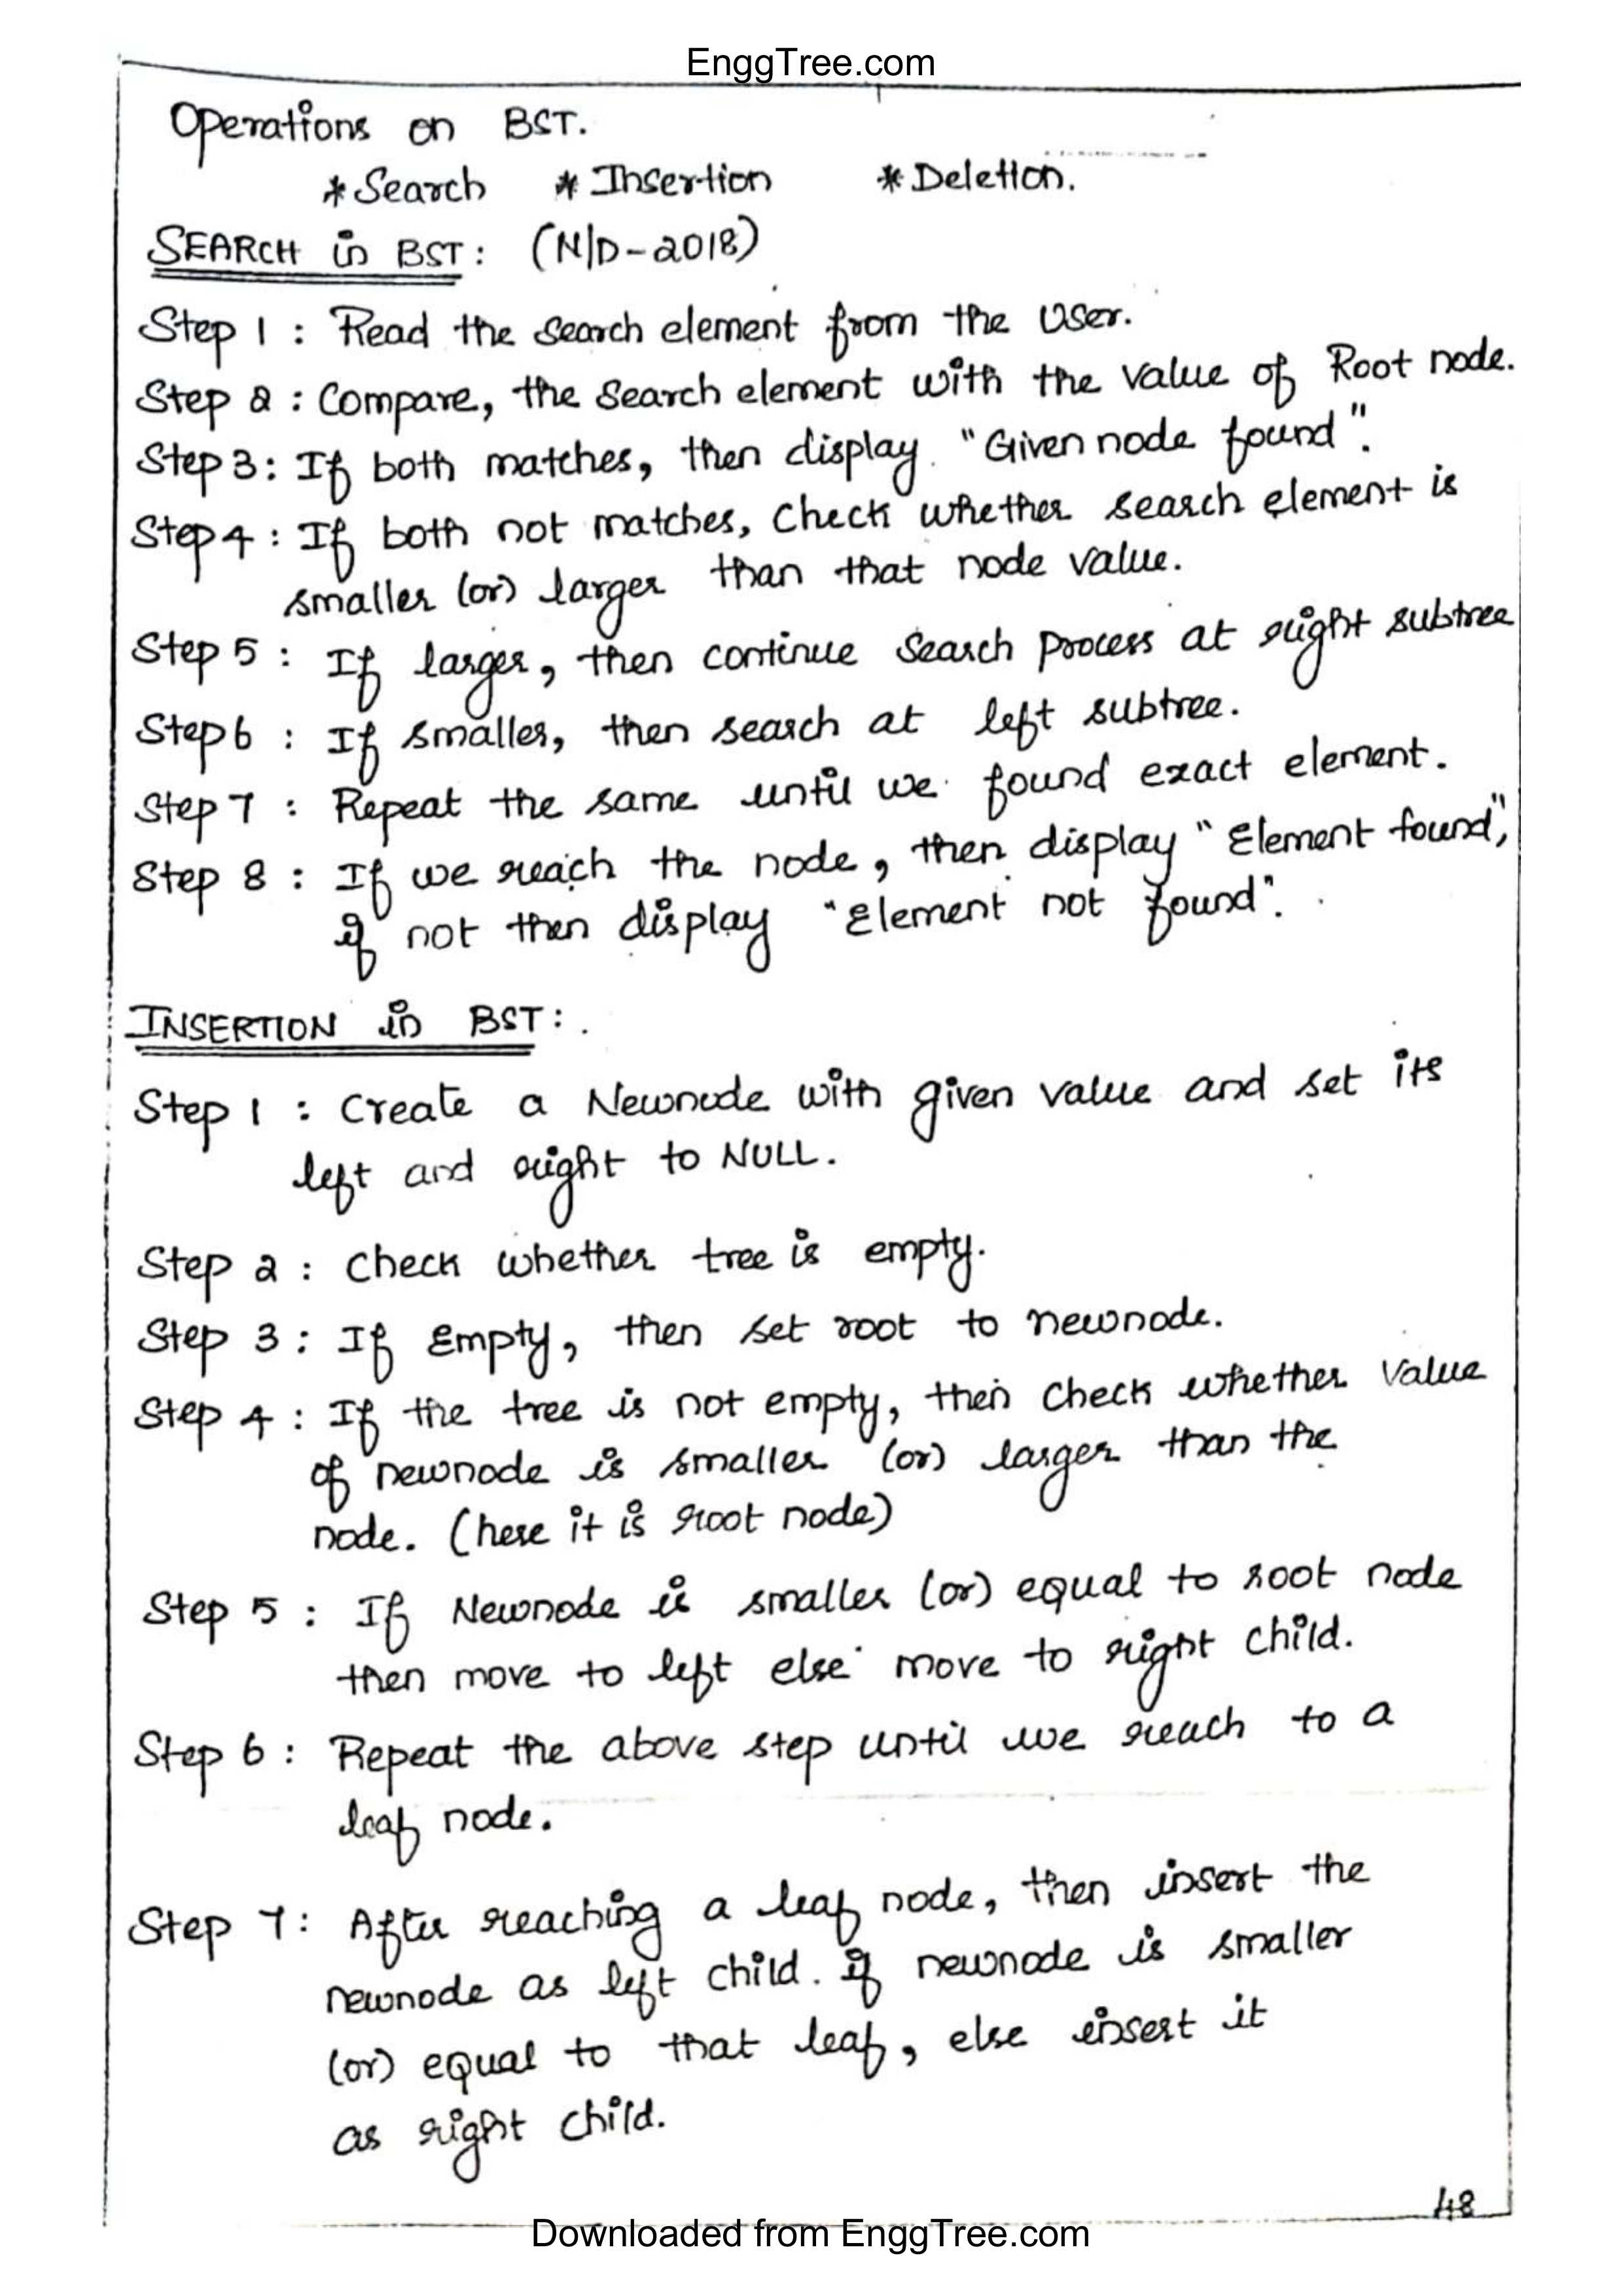 EnggTree.com
Operations on BST.
* Search * Insertion * Deletion.
SEARCH in BST : (N/D-2018)
Step 1 : Read the search element from the user.
Step 2 : Compare, the search element with the value of Root node.
Step 3 : If both matches, then display "Given node found".
Step 4 : If both not matches, check whether search element is
smaller (or) larger than that node value.
Step 5 : If larger, then continue search process at right subtree
Step 6 : If smaller, then search at left subtree.
Step 7 : Repeat the same until we found exact element.
Step 8 : If we reach the node, then display "Element found",
if not then display "Element not found".
INSERTION in BST :
Step 1 : Create a Newnode with given value and set its
left and right to NULL.
Step 2 : Check whether tree is empty.
Step 3 : If Empty, then set root to newnode.
Step 4 : If the tree is not empty, then check whether value
of newnode is smaller (or) larger than the
node. (here it is root node)
Step 5 : If Newnode is smaller (or) equal to root node
then move to left else move to right child.
Step 6 : Repeat the above step until we reach to a
leaf node.
Step 7 : After reaching a leaf node, then insert the
newnode as left child. if newnode is smaller
(or) equal to that leaf, else insert it
as right child.
48
Downloaded from EnggTree.com